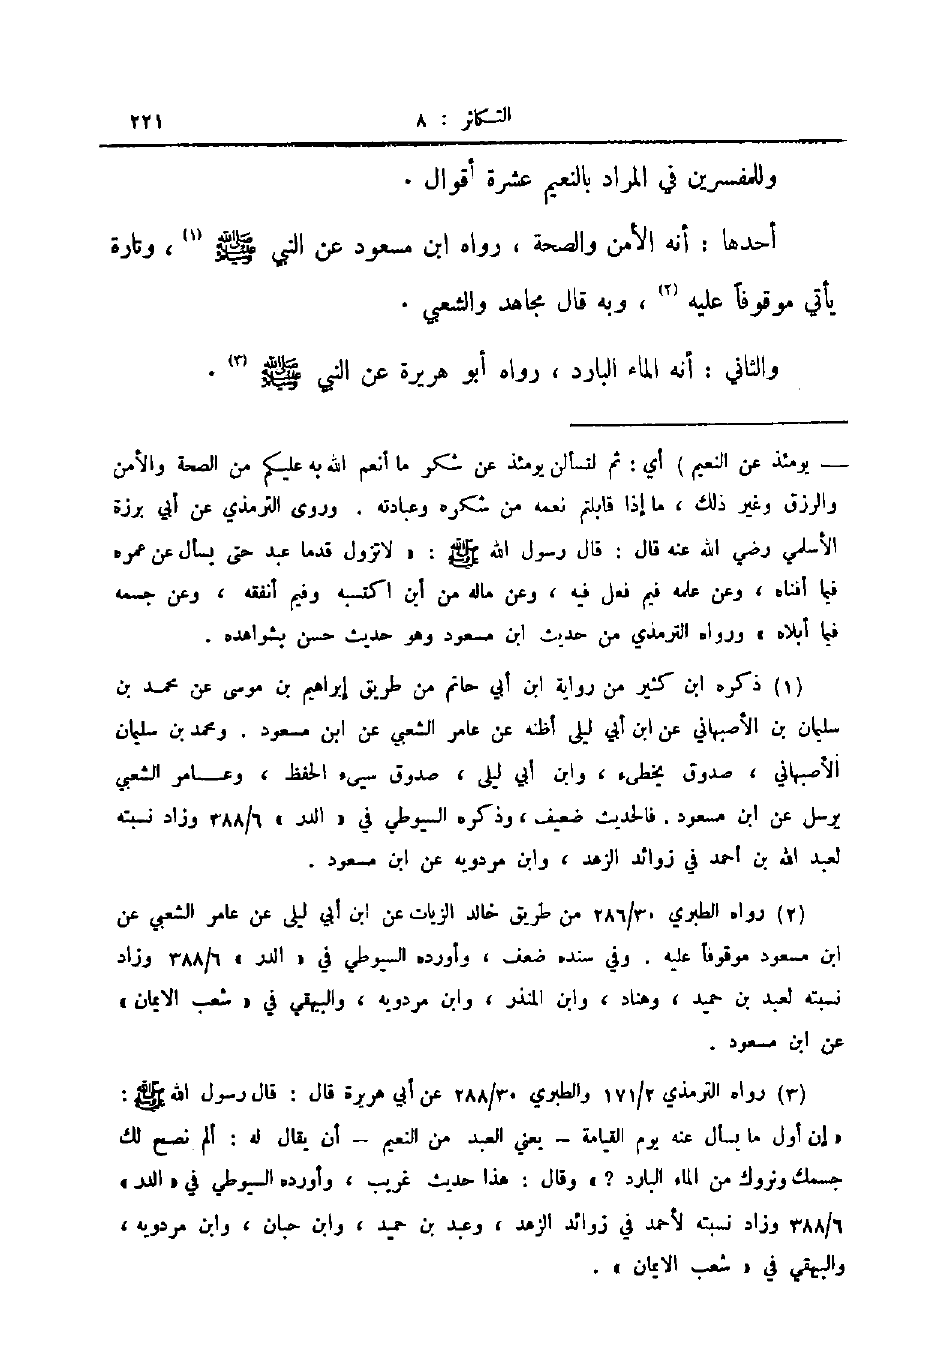 التكاثر : ٨ ٢٢١
وللمفسرين في المراد بالنعيم عشرة أقوال .
أحدها : أنه الأمن والصحة ، رواه ابن مسعود عن النبي ﷺ (١) ، وتارة
يأتي موقوفاً عليه (٢) ، وبه قال مجاهد والشعبي .
والثاني : أنه الماء البارد ، رواه أبو هريرة عن النبي ﷺ (٣) .
ــ يومئذ عن النعيم ) أي : ثم لتسألن يومئذ عن شكر ما أنعم الله به عليكم من الصحة والأمن
والرزق وغير ذلك ، ماإذا قابلتم نعمه من شكره وعبادته . وروى الترمذي عن أبي برزة
الأسلمي رضي الله عنه قال : قال رسول الله ﷺ : « لاتزول قدما عبد حتى يسأل عن عمره
فيما أفناه ، وعن علمه فيم فعل فيه ، وعن ماله من أين اكتسبه وفيم أنفقه ، وعن جسمه
فيما أبلاه » ورواه الترمذي من حديث ابن مسعود وهو حديث حسن بشواهده .
(١) ذكره ابن كثير من رواية ابن أبي حاتم من طريق إبراهيم بن موسى عن محمد بن
سليمان بن الأصبهاني عن ابن أبي ليلى أظنه عن عامر الشعبي عن ابن مسعود . ومحمد بن سليمان
الأصبهاني ، صدوق يخطىء ، وابن أبي ليلى ، صدوق سيىء الحفظ ، وعــامر الشعبي
يرسل عن ابن مسعود . فالحديث ضعيف ، وذكره السيوطي في « الدر » ٣٨٨/٦ وزاد نسبته
لعبد الله بن أحمد في زوائد الزهد ، وابن مردويه عن ابن مسعود .
(٢) رواه الطبري ٢٨٦/٣٠ من طريق خالد الزيات عن ابن أبي ليلى عن عامر الشعبي عن
ابن مسعود موقوفاً عليه . وفي سنده ضعف ، وأورده السيوطي في « الدر » ٣٨٨/٦ وزاد
نسبته لعبد بن حميد ، وهناد ، وابن المنذر ، وابن مردويه ، والبيهقي في « شعب الايمان »
عن ابن مسعود .
(٣) رواه الترمذي ١٧١/٢ والطبري ٢٨٨/٣٠ عن أبي هريرة قال : قال رسول الله ﷺ :
« إن أول ما يسأل عنه يوم القيامة – يعني العبد من النعيم – أن يقال له : ألم نصح لك
جسمك ونروك من الماء البارد ؟ » وقال : هذا حديث غريب ، وأورده السيوطي في « الدر »
٣٨٨/٦ وزاد نسبته لأحمد في زوائد الزهد ، وعبد بن حميد ، وابن حبان ، وابن مردويه ،
والبيهقي في « شعب الايمان » .